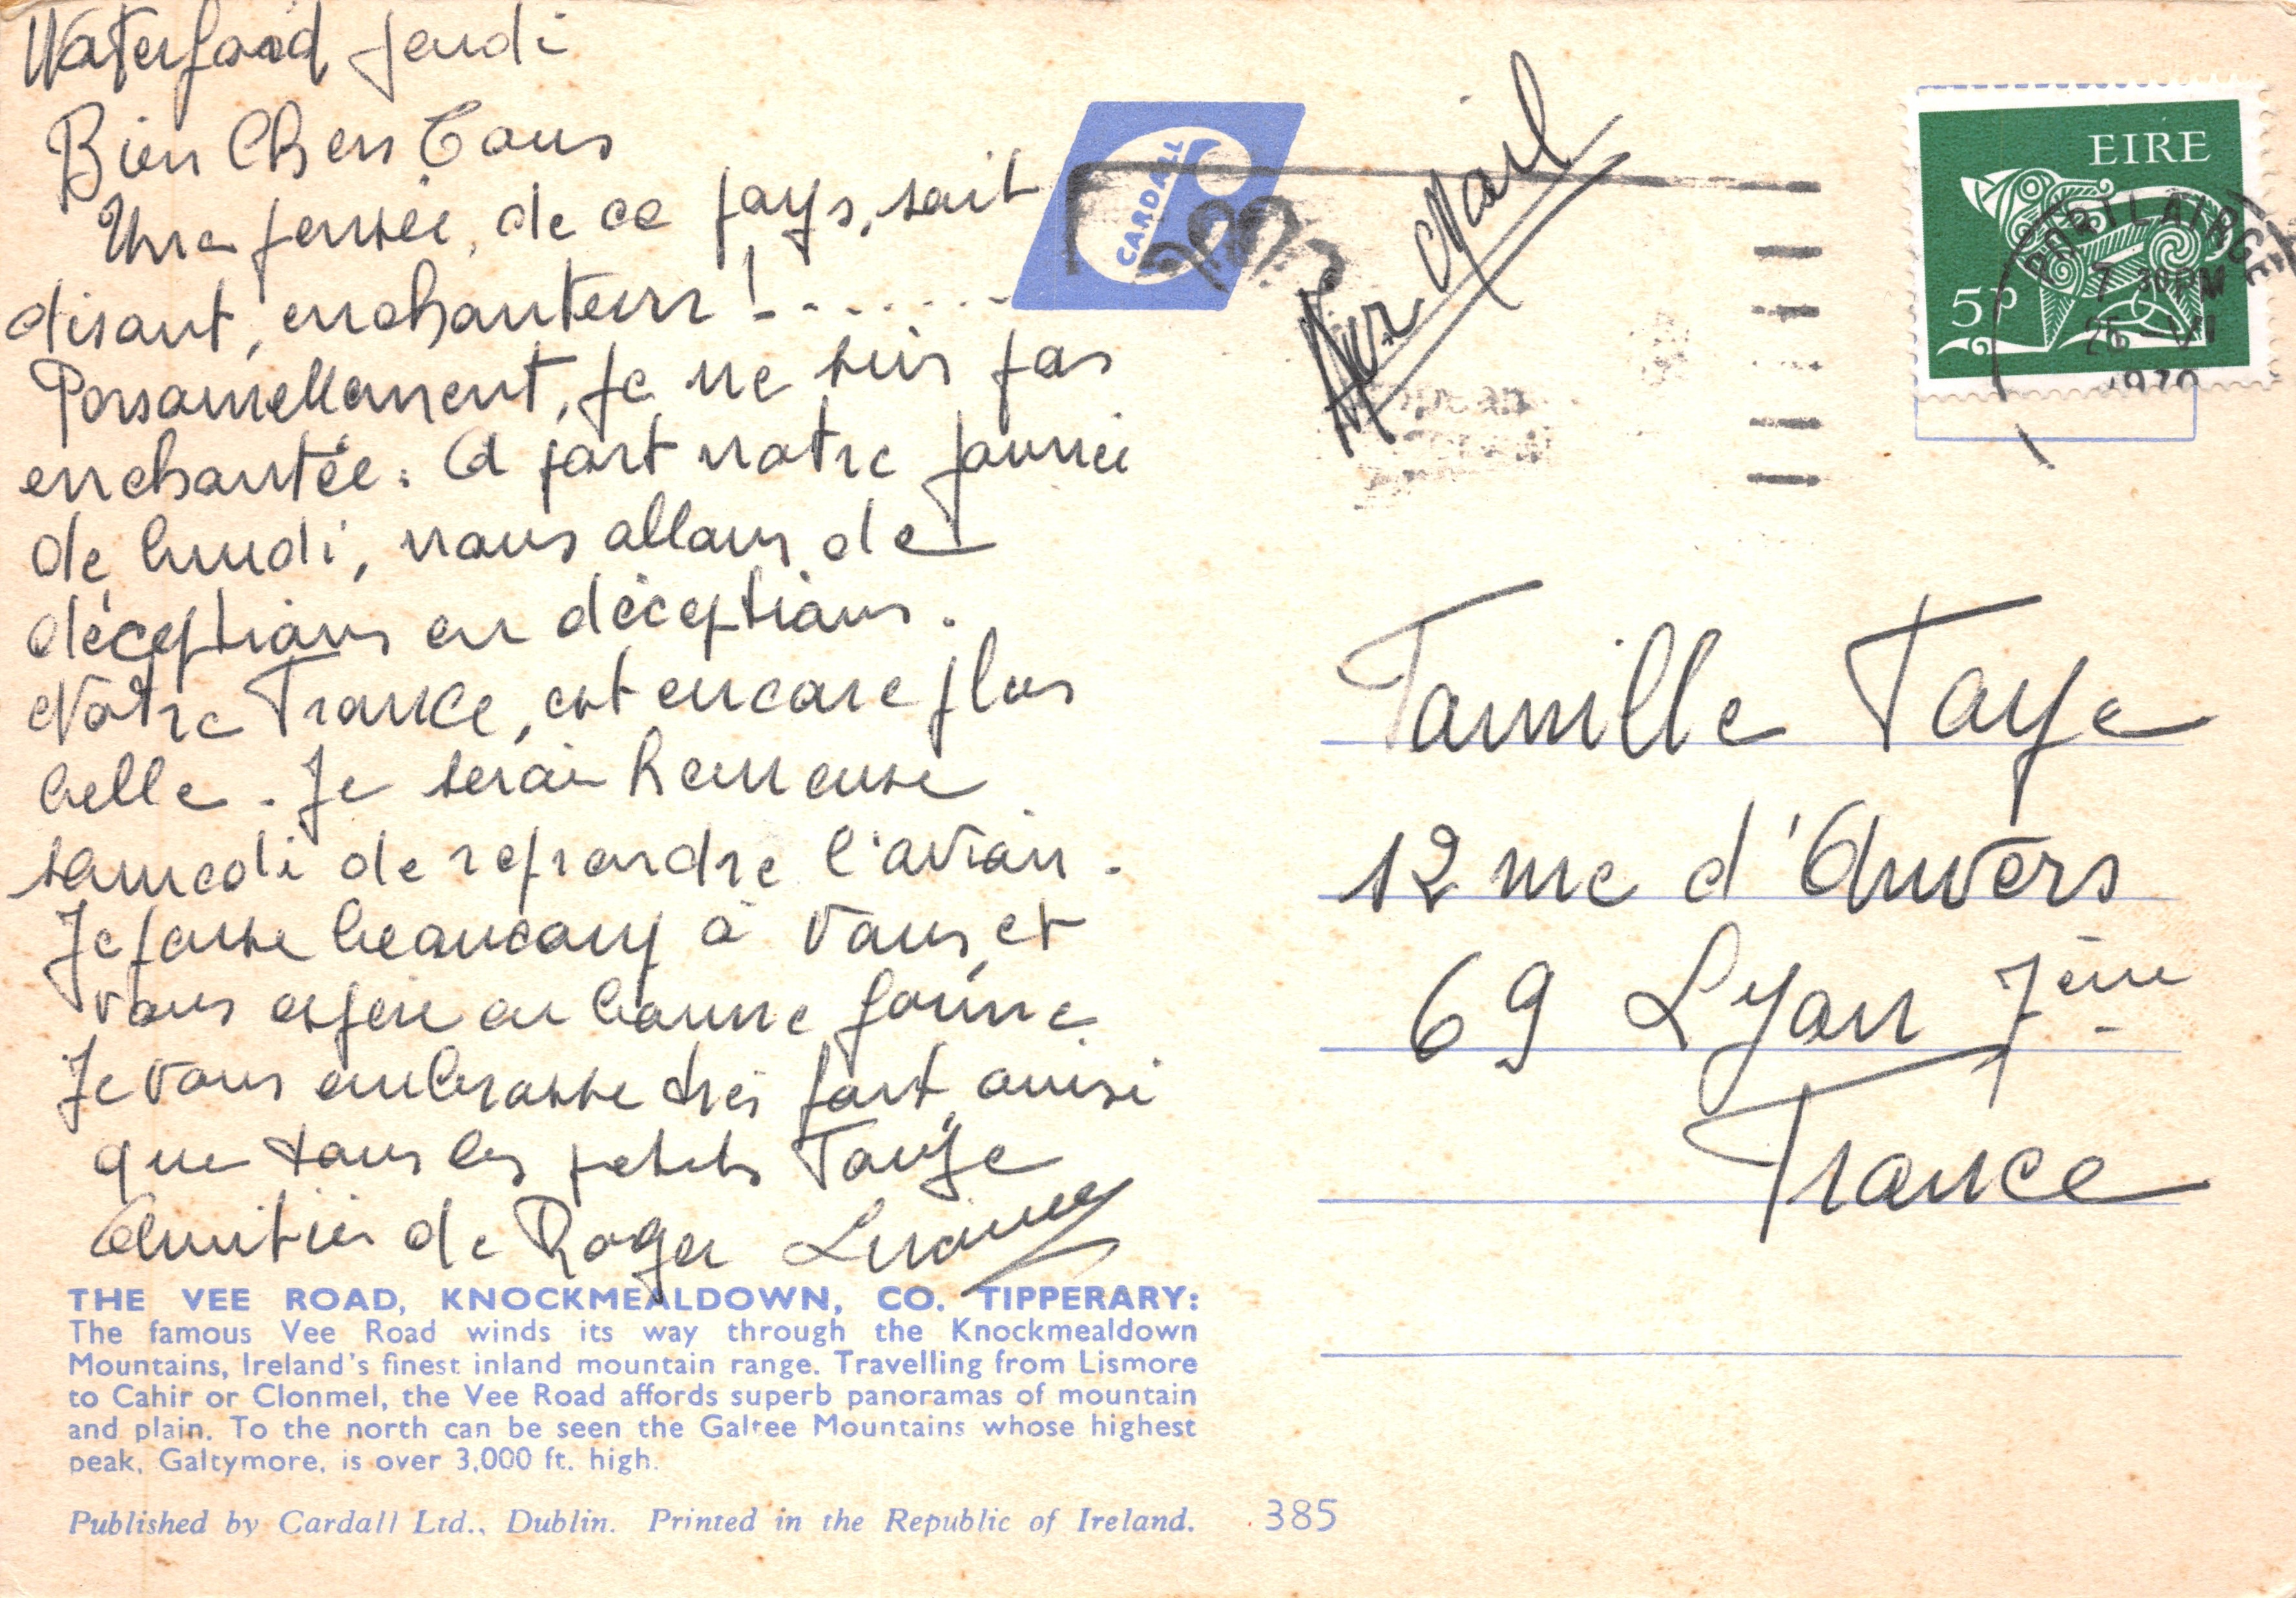 Waterford Jeudi
Bien Chers Tous
Une pensée, de ce pays, soit
disant, enchanteur ! - . . . . . .
Personnellement, je ne suis pas
enchantée. A part notre journée
de lundi, nous allons de
déceptions en déceptions.
Notre France, est encore plus
belle. Je serai heureuse
samedi de reprendre l'avion.
Je pense beaucoup à vous, et
vous espère en bonne forme
Je vous embrasse très fort, ainsi
que tous les petits Faÿe
Amitiés de Roger
THE VEE ROAD, KNOCKMEALDOWN, CO. TIPPERARY:
The famous Vee Road winds its way through the Knockmealdown
Mountains, Ireland's finest inland mountain range. Travelling from Lismore
to Cahir or Clonmel, the Vee Road affords superb panoramas of mountain
and plain. To the north can be seen the Galtee Mountains whose highest
peak, Galtymore, is over 3,000 ft. high.
Published by Cardall Ltd., Dublin. Printed in the Republic of Ireland.
385
CARDALL
Air Mail
EIRE
5p
PORT LAIRGE
7 30PM
26 VI
Famille Faye
12 rue d'Anvers
69 Lyon 7ème
France